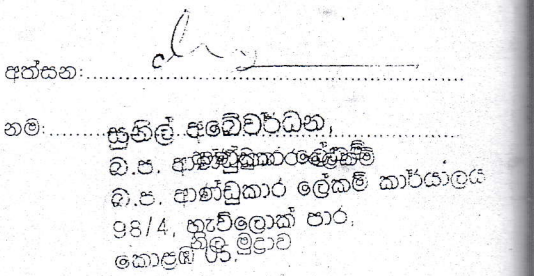 අත්සන:
නම: සුනිල් අබේවර්ධන,
බ.ප. ආණ්ඩුකාර ලේකම්
බ.ප. ආණ්ඩුකාර ලේකම් කාර්යාලය
98/4, හැව්ලොක් පාර,
නිල මුද්‍රාව
කොළඹ 05.